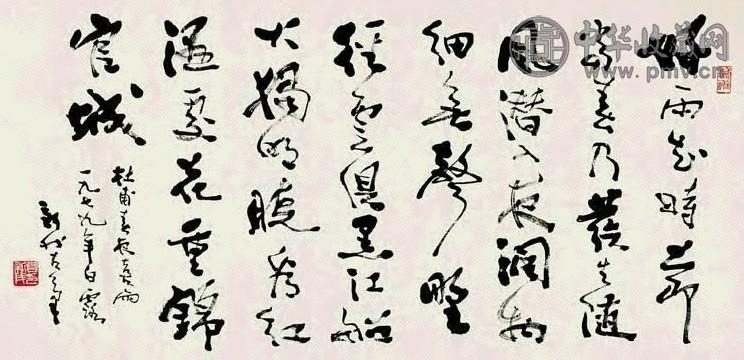 好雨知時節
當春乃發生隨
風潛入夜潤物
細無聲野
徑雲俱黑江船
火獨明曉看紅
濕處花重錦
官城
杜甫春夜喜雨
一九七九年白露
新我左筆
中华收藏网
www.pmv.cn